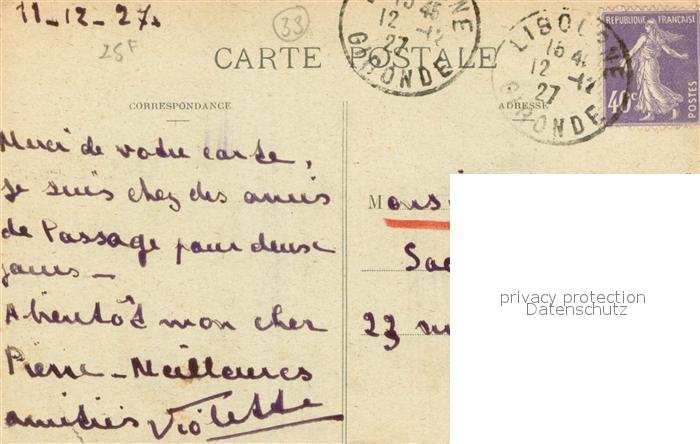 11-12-27.
25F
33
CARTE POSTALE
LIBOURNE
15 45
12 -12
27
GIRONDE
LIBOURNE
15 45
12 -12
27
GIRONDE
REPUBLIQUE FRANÇAISE
40c
POSTES
CORRESPONDANCE
ADRESSE
Merci de votre carte,
je suis chez des amis
de Passage pour deux
jours -
A bientôt mon cher
Pierre - Meilleures
amitiés Violette
Monsi
Sac
23 ru
privacy protection
Datenschutz